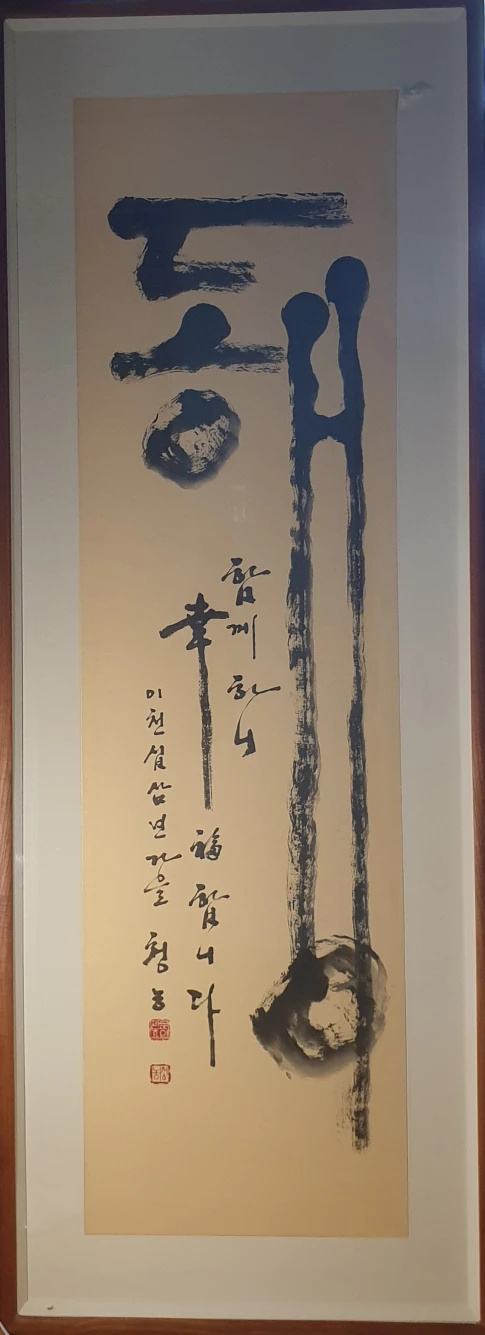 동행
함께 하니
幸福 합니다
이천십삼년 가을 청농